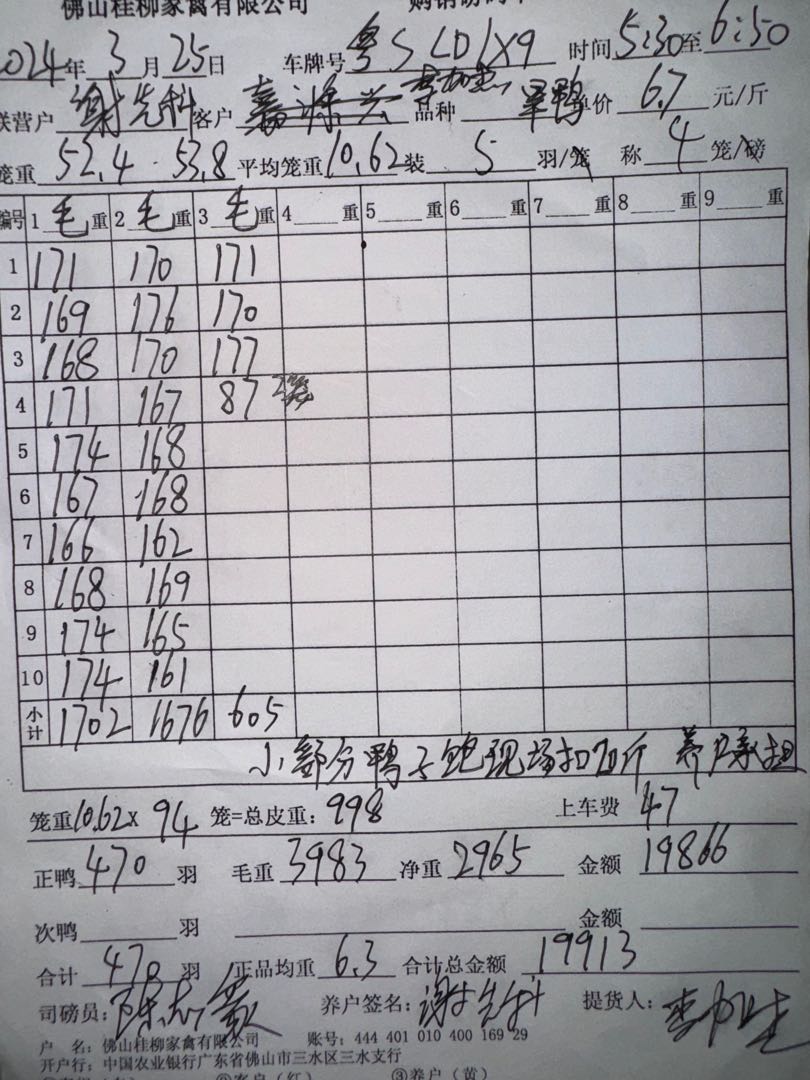 佛山桂柳家禽有限公司
2024年3月25日 车牌号 粤S 时间5:30至6:50
联营户 谢先科 客户 嘉源兴 品种 单价 6.7 元/斤
笼重 52.4 - 53.8 平均笼重10.62装 5 羽/笼 称 4 笼/磅
编号 1 毛 重 2 毛 重 3 毛 重 4 重 5 重 6 重 7 重 8 重 9 重
1 171 170 171
2 169 176 170
3 168 170 177
4 171 167 87 2笼
5 174 168
6 167 168
7 166 162
8 168 169
9 174 165
10 174 161
小计 1702 1676 605
小部分鸭子饱现场扣20斤 养户承担
笼重10.62× 94 笼=总皮重: 998 上车费 47
正鸭 470 羽 毛重 3983 净重 2965 金额 19866
次鸭 羽 金额
合计 470 羽 正品均重 6.3 合计总金额 19913
司磅员: 养户签名: 谢先科 提货人:
户 名: 佛山桂柳家禽有限公司 账号: 444 401 010 400 169 29
开户行: 中国农业银行广东省佛山市三水区三水支行
②客户(红) ③养户(黄)